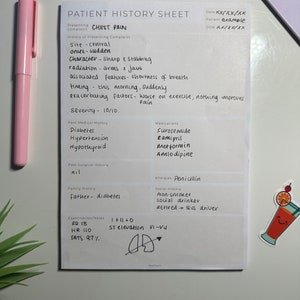 PATIENT HISTORY SHEET
Date xx/xx/xx
Patient example
Presenting Complaint CHEST PAIN
History of Presenting Complaint
site - central
onset - sudden
character - sharp & stabbing
radiation - arms & jaw
associated features - shortness of breath
timing - this morning, suddenly
exacerbating factors - worse on exercise, nothing improves pain
severity - 10/10
Past Medical History
Diabetes
Hypertension
Hypothyroid
Medications
Furosemide
Ramipril
Metformin
Amlodipine
Past Surgical History
nil
Allergies Penicillin
Family History
Father - diabetes
Social History
non-smoker
social drinker
retired → bus driver
Examination/Notes
RR 18
HR 110
SATS 97%
I + II + 0
ST elevation V1-V4